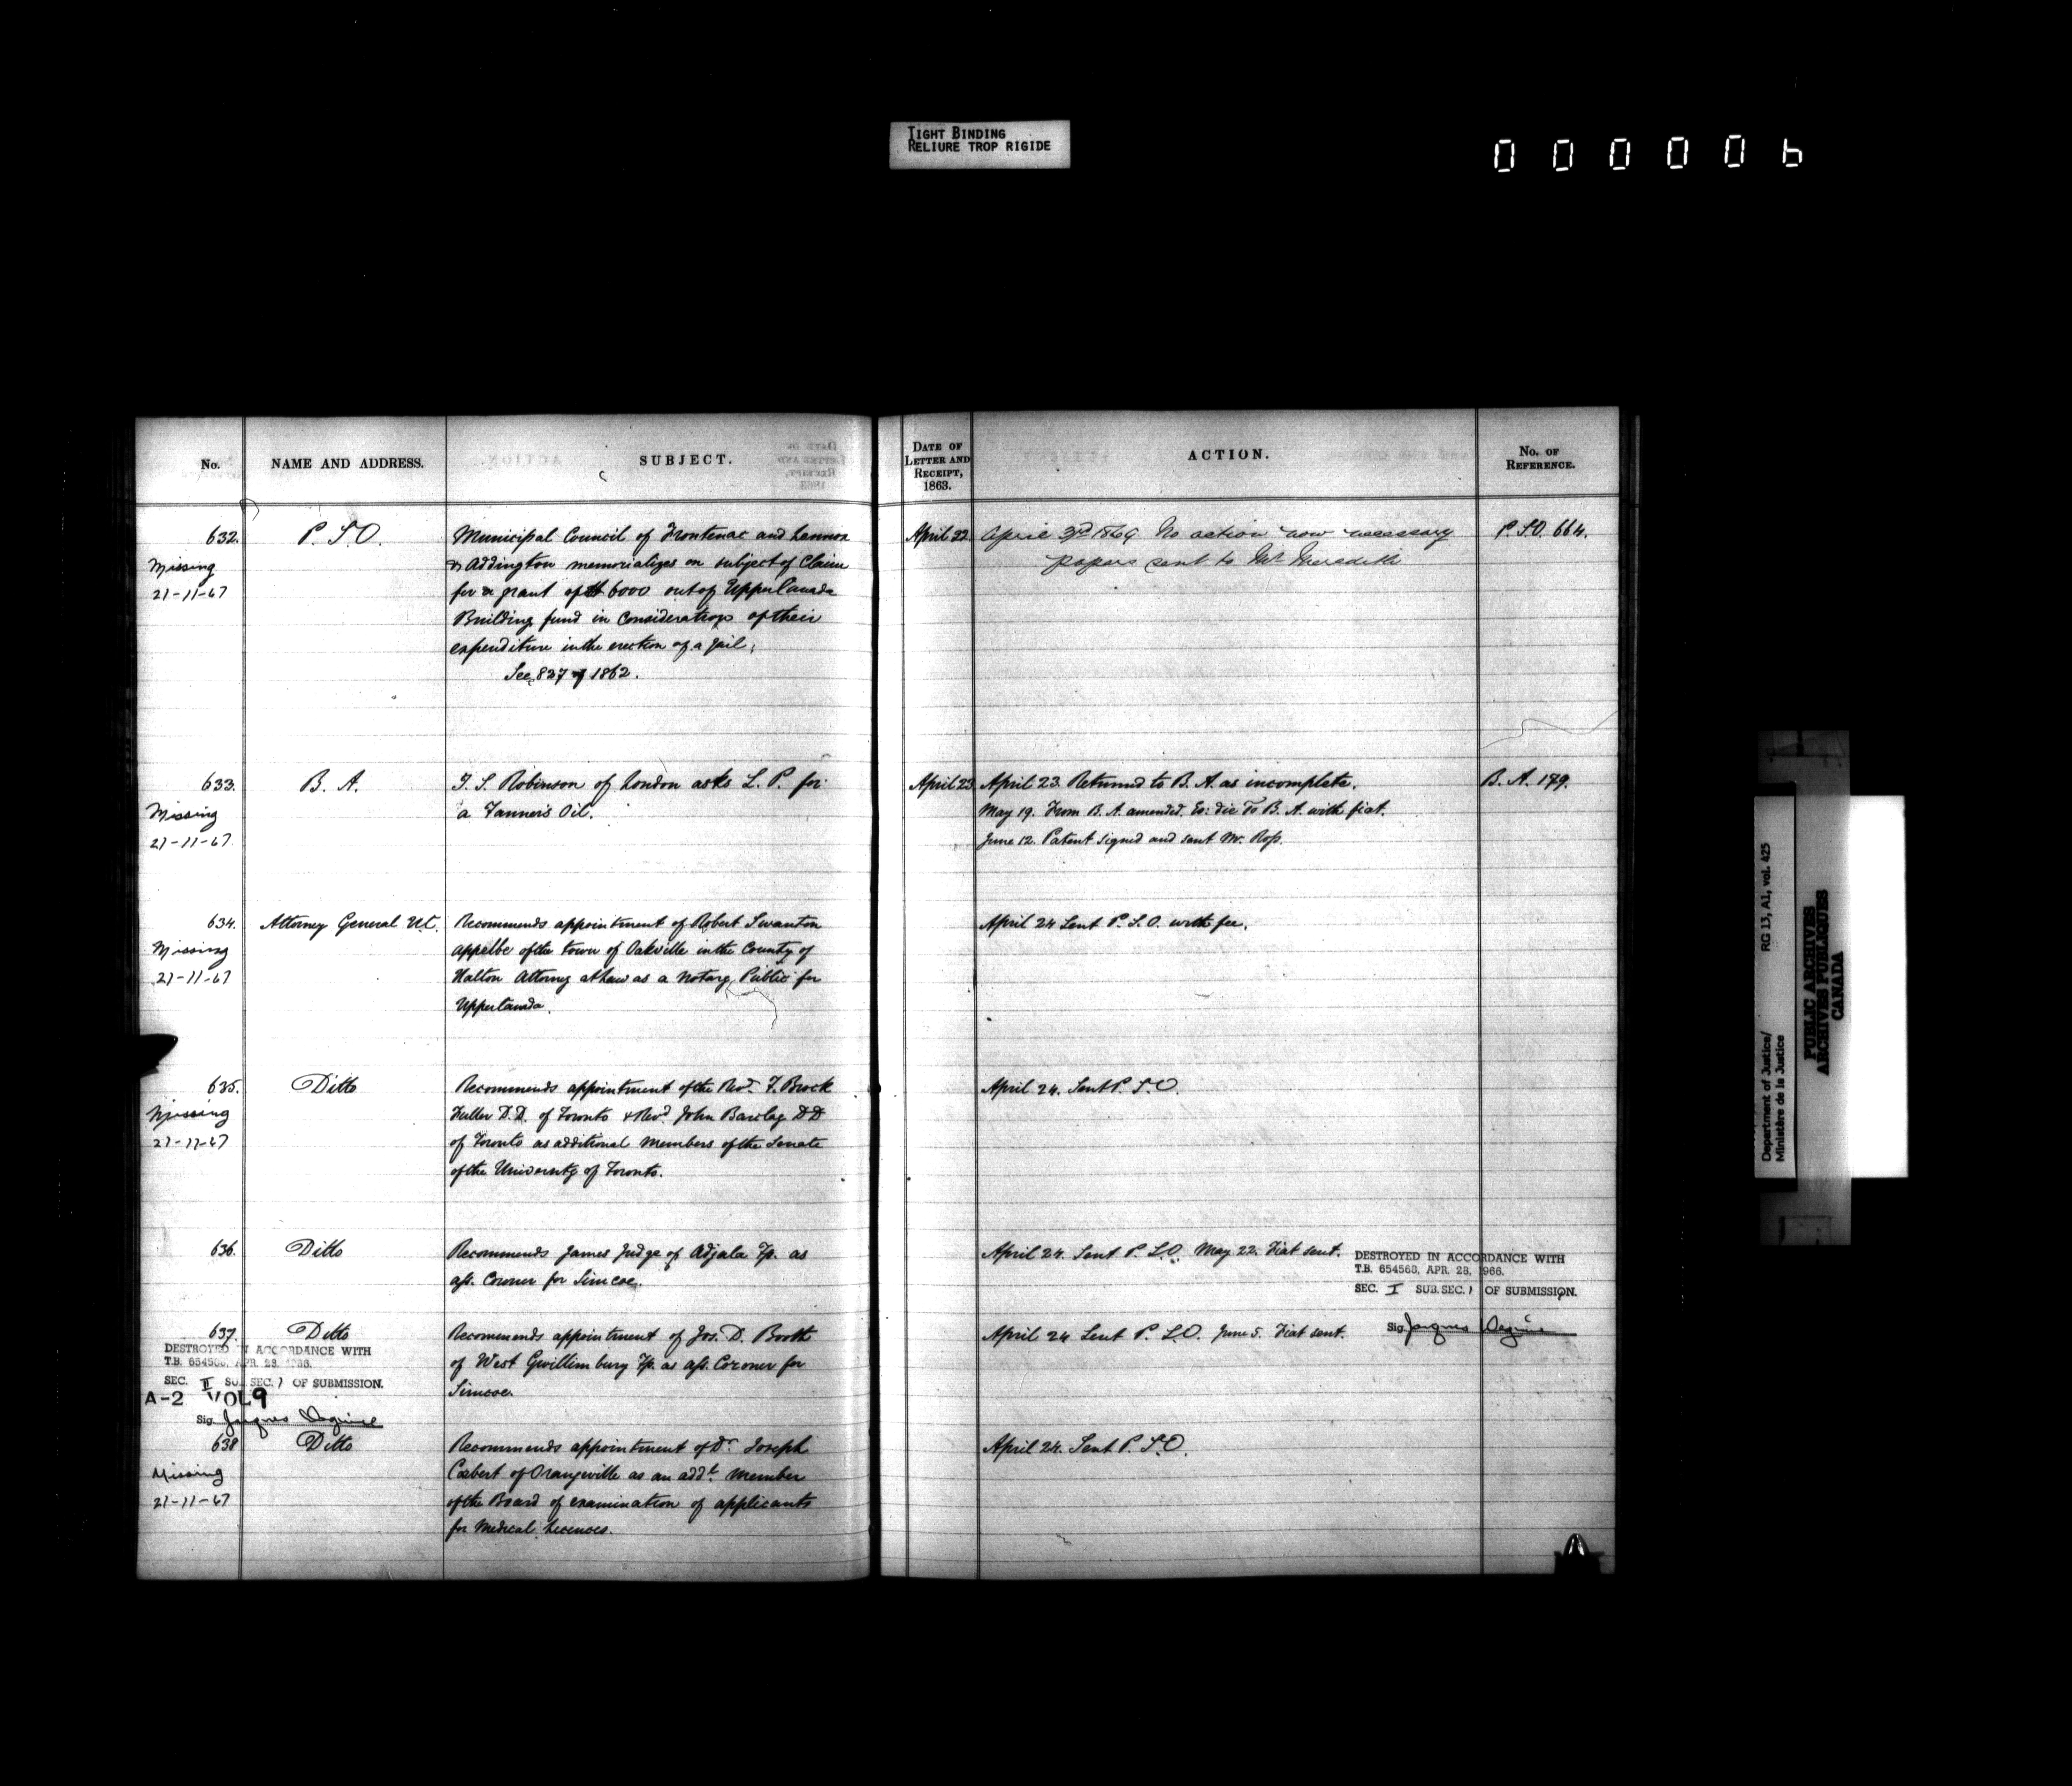 TIGHT BINDING
RELIURE TROP RIGIDE
000006
No.
NAME AND ADDRESS.
SUBJECT.
DATE OF
LETTER AND
RECEIPT,
1863.
ACTION.
No. OF
REFERENCE.
632.
P. S. O.
Municipal Council of Frontenac and Lennox
& Addington memorializes on subject of Claim
for a grant of $6000 out of Upper Canada
Building fund in Consideration of their
expenditure in the erection of a jail,
See 827 of 1862.
Missing
21-11-67
April 22
April 3rd 1869 No action now necessary
papers sent to Mr Meredith
P. S. O. 664.
633.
B. A.
Robinson of London asks L. P. for
a Tanner's Oil.
Missing
21-11-67
April 23
April 23. Returned to B. A. as incomplete.
May 19. From B. A. amended. Eo: die To B. A. with fiat.
June 12. Patent signed and sent Mr. Ross.
B. A. 179.
634.
Attorney General U.C.
Recommends appointment of Robert Swanton
Appelbe of the town of Oakville in the County of
Halton Attorney at Law as a Notary Public for
Upper Canada.
Missing
21-11-67
April 24 Sent P. S. O. with fee.
635.
Ditto
Recommends appointment of the Revd. T. Brock
Fuller D.D. of Toronto & Revd. John Barclay DD
of Toronto as additional Members of the Senate
of the University of Toronto.
Missing
21-11-67
April 24. Sent P. S. O.
636.
Ditto
Recommends James Judge of Adjala Tp. as
ass. Coroner for Simcoe.
April 24. Sent P. S. O. May 22. Fiat sent.
DESTROYED IN ACCORDANCE WITH
T.B. 654563, APR. 28, 1966.
SEC. I SUB.SEC. 1 OF SUBMISSION.
Sig. Jacques
637.
Ditto
Recommends appointment of Jos. D. Booth
of West Gwillimbury Tp. as ass. Coroner for
Simcoe.
April 24 Sent P. S. O. June 5. Fiat sent.
DESTROYED IN ACCORDANCE WITH
T.B. 654563, APR. 28, 1966.
SEC. II SUB.SEC. 1 OF SUBMISSION.
A-2 VOL 9
Sig. Jacques
638
Ditto
Recommends appointment of Dr. Joseph
Carbert of Orangeville as an addl. Member
of the Board of examination of applicants
for Medical Licences.
Missing
21-11-67
April 24. Sent P. S. O.
Department of Justice/
Ministère de la Justice
RG 13, A1, vol. 425
PUBLIC ARCHIVES
ARCHIVES PUBLIQUES
CANADA